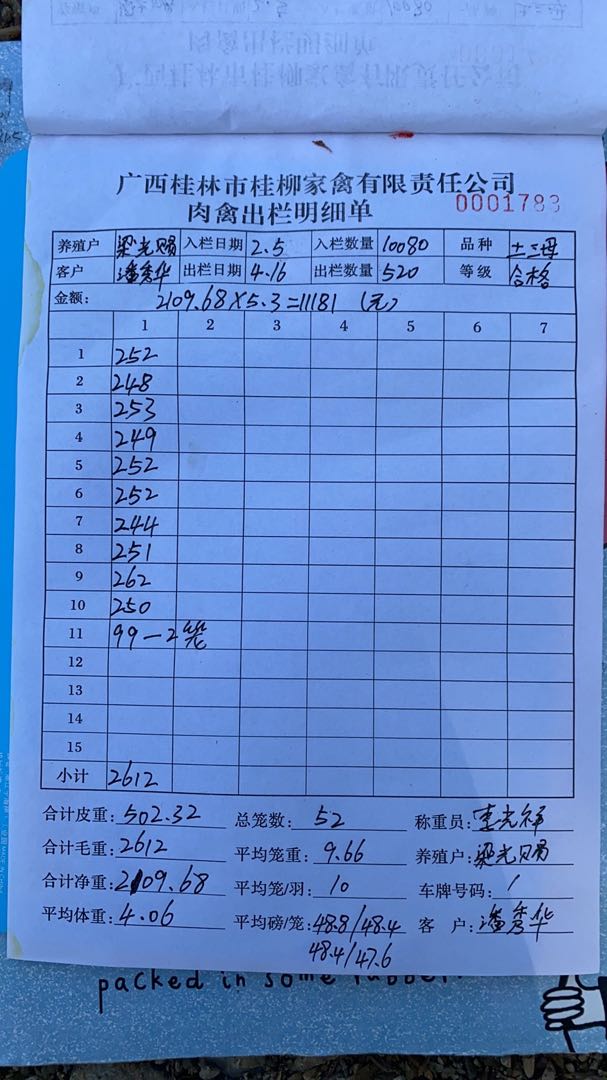 广西桂林市桂柳家禽有限责任公司
肉禽出栏明细单 0001783
养殖户 梁光赐 入栏日期 2.5 入栏数量 10080 品种 土三母
客户 潘秀华 出栏日期 4.16 出栏数量 520 等级 合格
金额: 2109.68×5.3=11181 (元)
1 2 3 4 5 6 7
1 252
2 248
3 253
4 249
5 252
6 252
7 244
8 251
9 262
10 250
11 99-2笼
12
13
14
15
小计 2612
合计皮重: 502.32 总笼数: 52 称重员: 李光祥
合计毛重: 2612 平均笼重: 9.66 养殖户: 梁光赐
合计净重: 2109.68 平均笼/羽: 10 车牌号码: /
平均体重: 4.06 平均磅/笼: 48.8/48.4 客 户: 潘秀华
48.4/47.6
packed in some